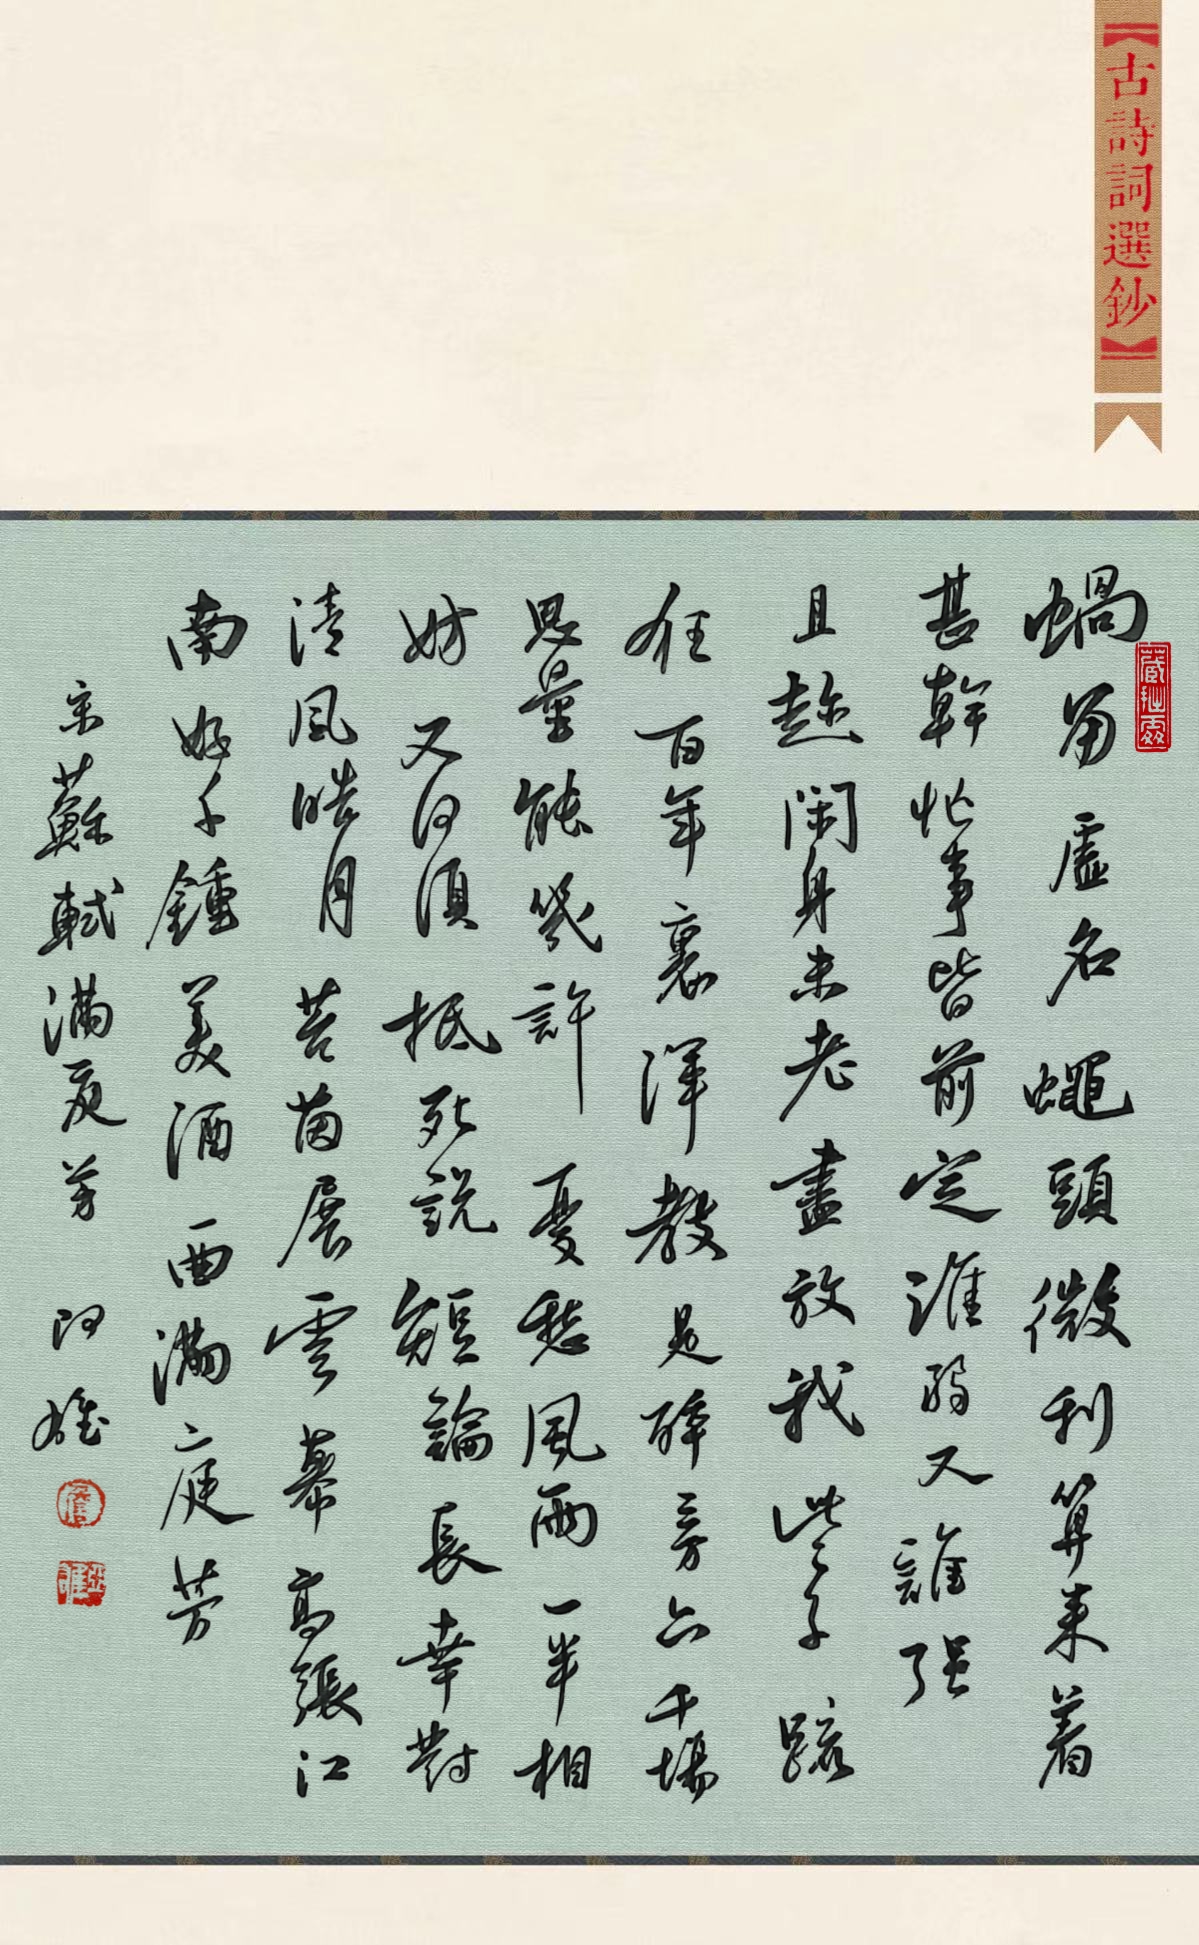 【古詩詞選鈔】
蝸角虛名蠅頭微利算来着
甚幹忙事皆前定誰弱又誰强
且趂閑身未老盡放我些子疏
狂百年裏渾教是醉三万六千場
思量能幾許憂愁風雨一半相
妨又何須抵死説短論長幸對
清風皓月苔茵展雲幕高張江
南好千鍾美酒一曲滿庭芳
宋蘇軾滿庭芳